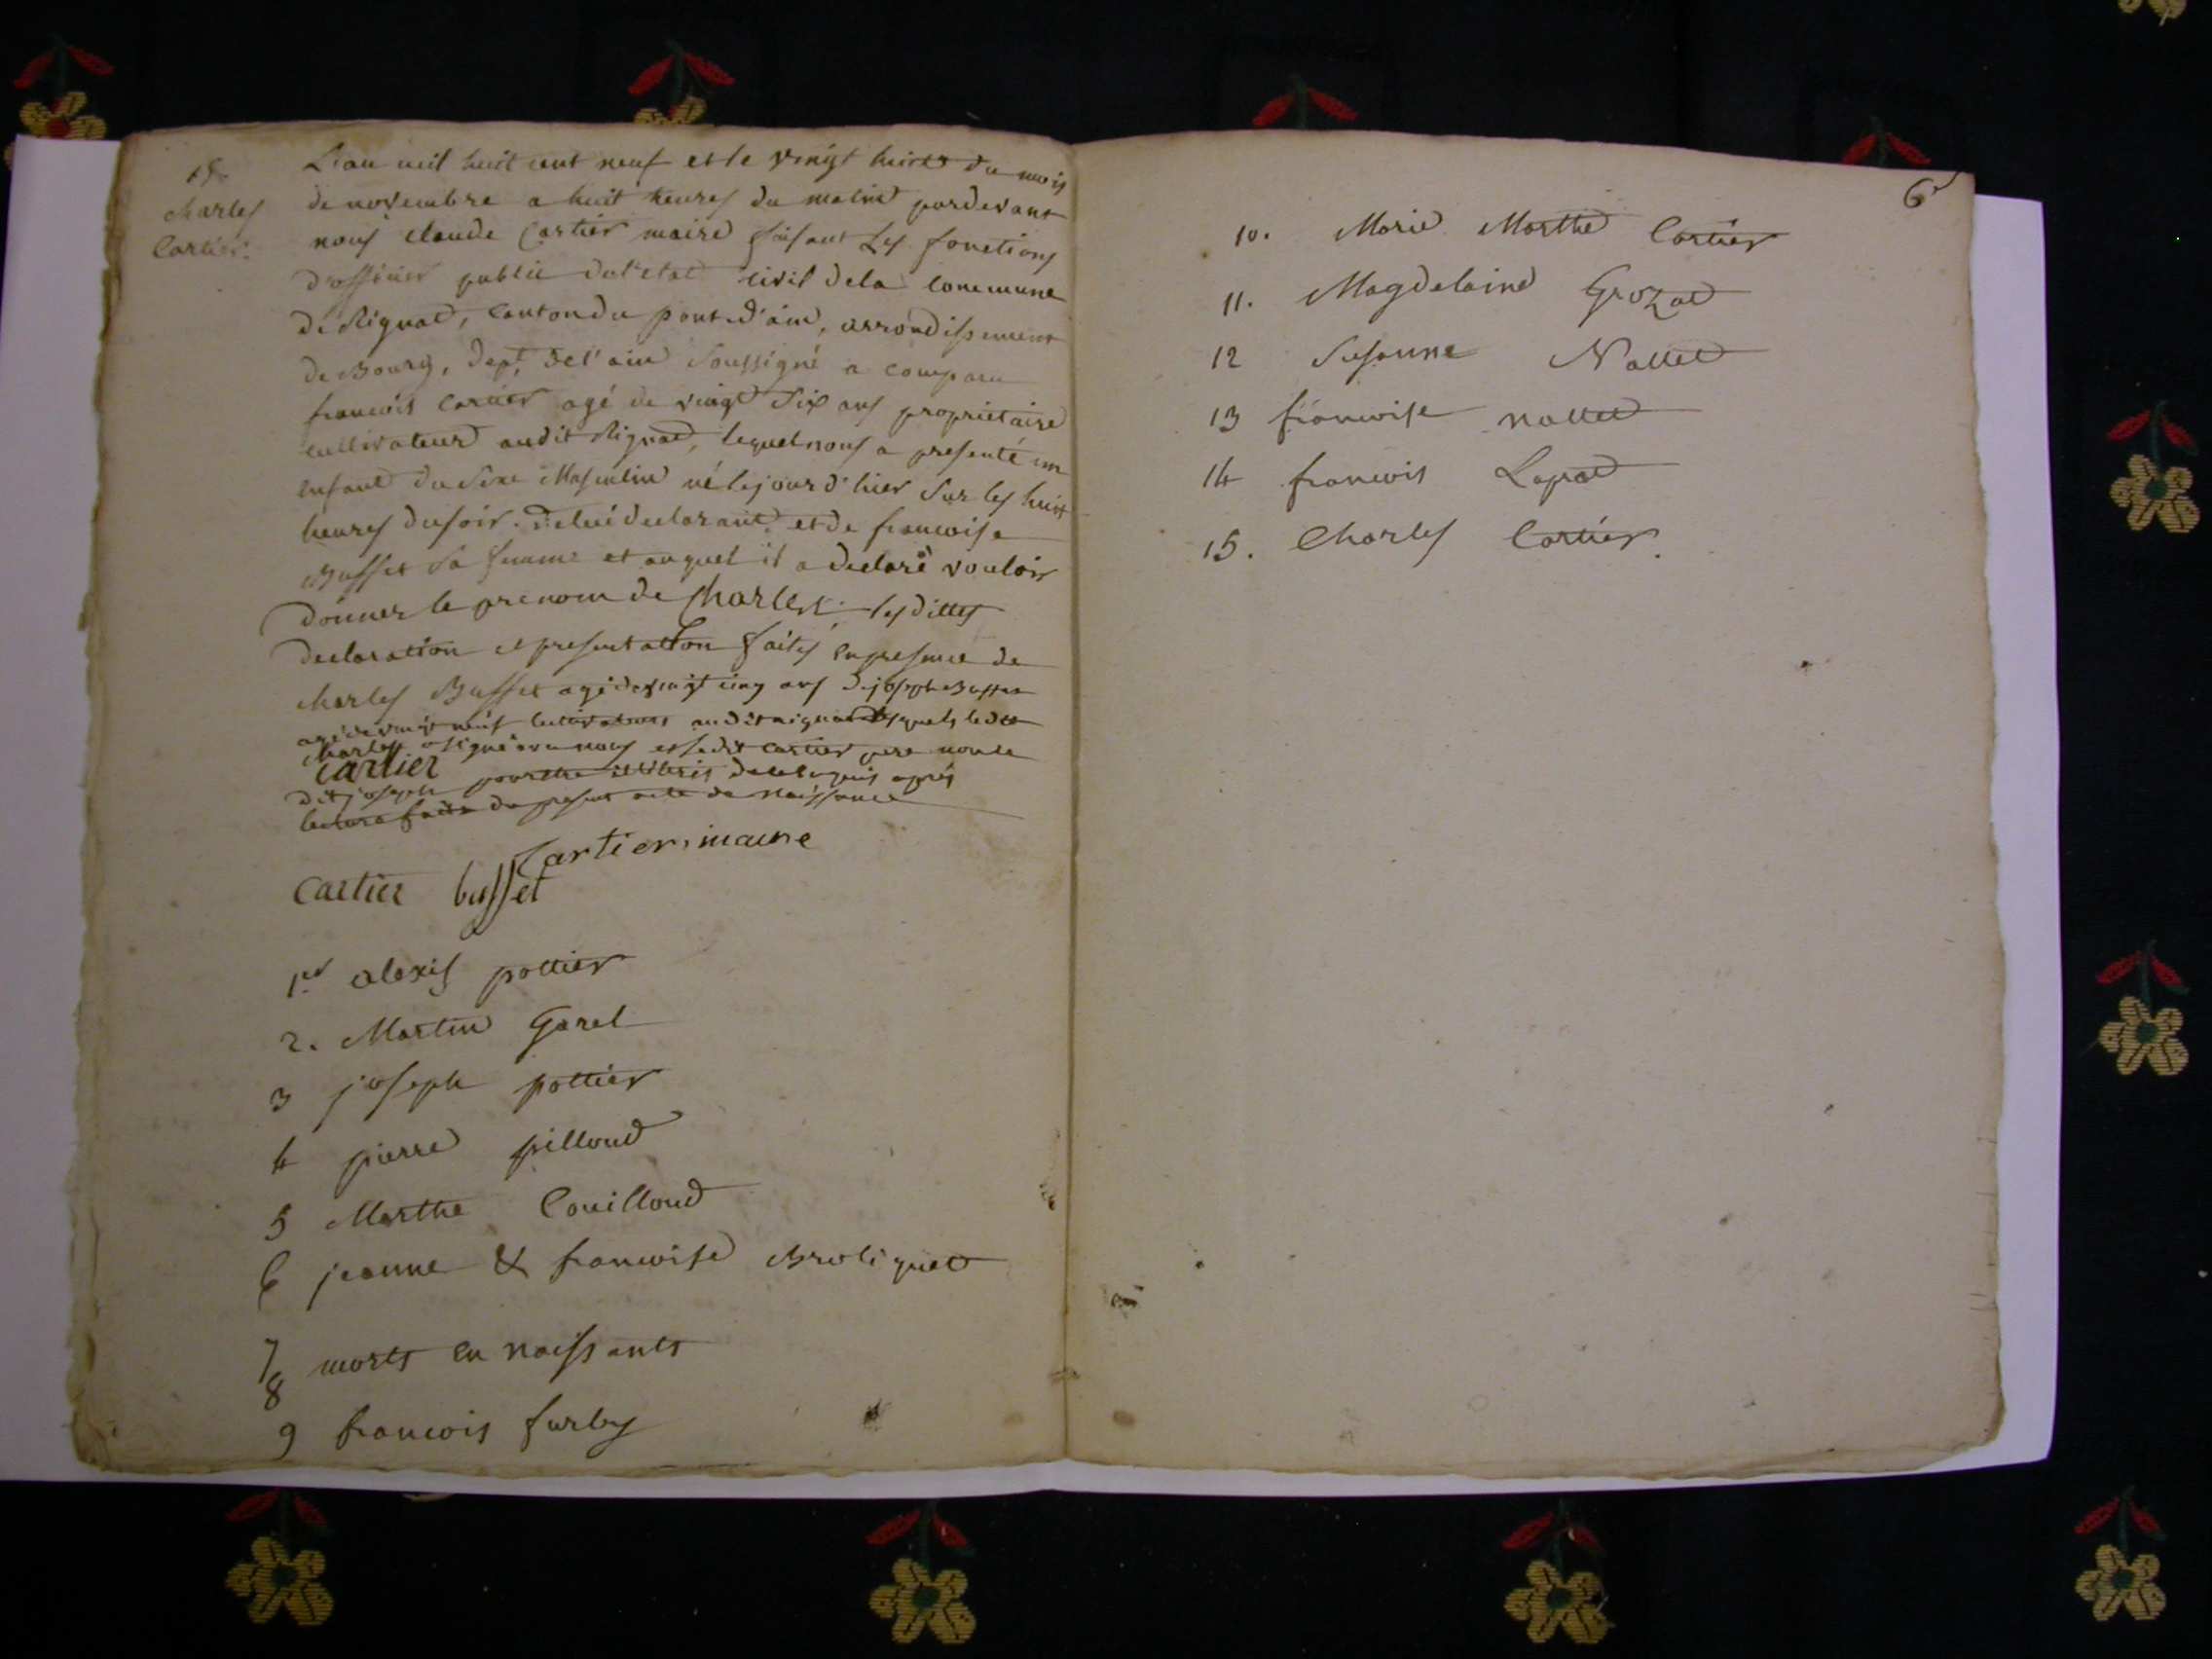 15
Charles
Cartier.
L'an mil huit cent neuf et le vingt huit du mois
de novembre a huit heures du matin pardevant
nous claude Cartier maire faisant Les fonctions
d'officier public de l'etat civil de la commune
de Rignat, canton du pont d'ain, arrondissement
de Bourg, dept. de l'ain Soussigné a comparu
francois cartier agé de vingt Six ans proprietaire
cultivateur audit Rignat, lequel nous a presenté un
enfant du Sexe Masculin né le jour d'hier Sur les huit
heures du soir. de lui declarant et de francoise
Buffet Sa femme et auquel il a declaré vouloir
donner le prenom de Charles. les dittes
declaration et presentation faites en presence de
charles Buffet agé de vingt cinq ans de joseph Buffet
agé de vingt neuf cultivateurs audit rignat desquels ledit
Charles a signé avec nous et ledit cartier pere non le
Cartier
dit joseph pour être illiteris de ce requis après
lecture faite du present acte de Naissance
Cartier, maire
Cartier buffet
1er alexis pottier
2. Martin Garel
3 joseph pottier
4 pierre pilloud
5 Marthe Couilloud
6 jeanne & francoise Broliquet
7 morts en naissants
8
9 francois furby
6
10. Marie Marthe Cartier
11. Magdelaine Grozat
12 Susanne Nallet
13 francoise nallet
14 francois Laprat
15. Charles Cartier.